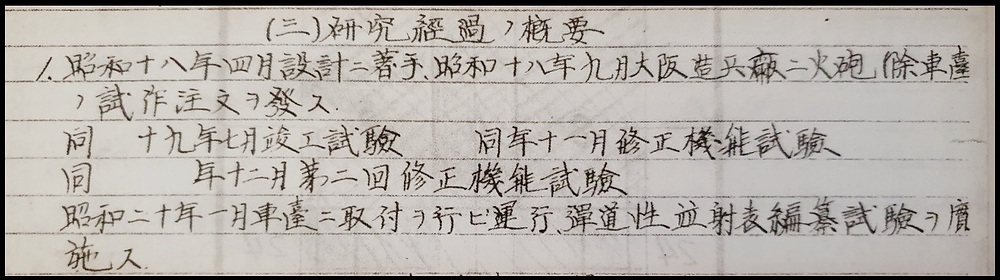 (三)研究經過ノ概要
1. 昭和十八年四月設計ニ著手、昭和十八年九月大阪造兵廠ニ火砲(除車臺)
ノ試作注文ヲ發ス
同 十九年七月竣工試驗 同年十一月修正機能試驗
同 年十二月第二回修正機能試驗
昭和二十年一月車臺ニ取付ヲ行ヒ運行、彈道性並射表編纂試驗ヲ實
施ス